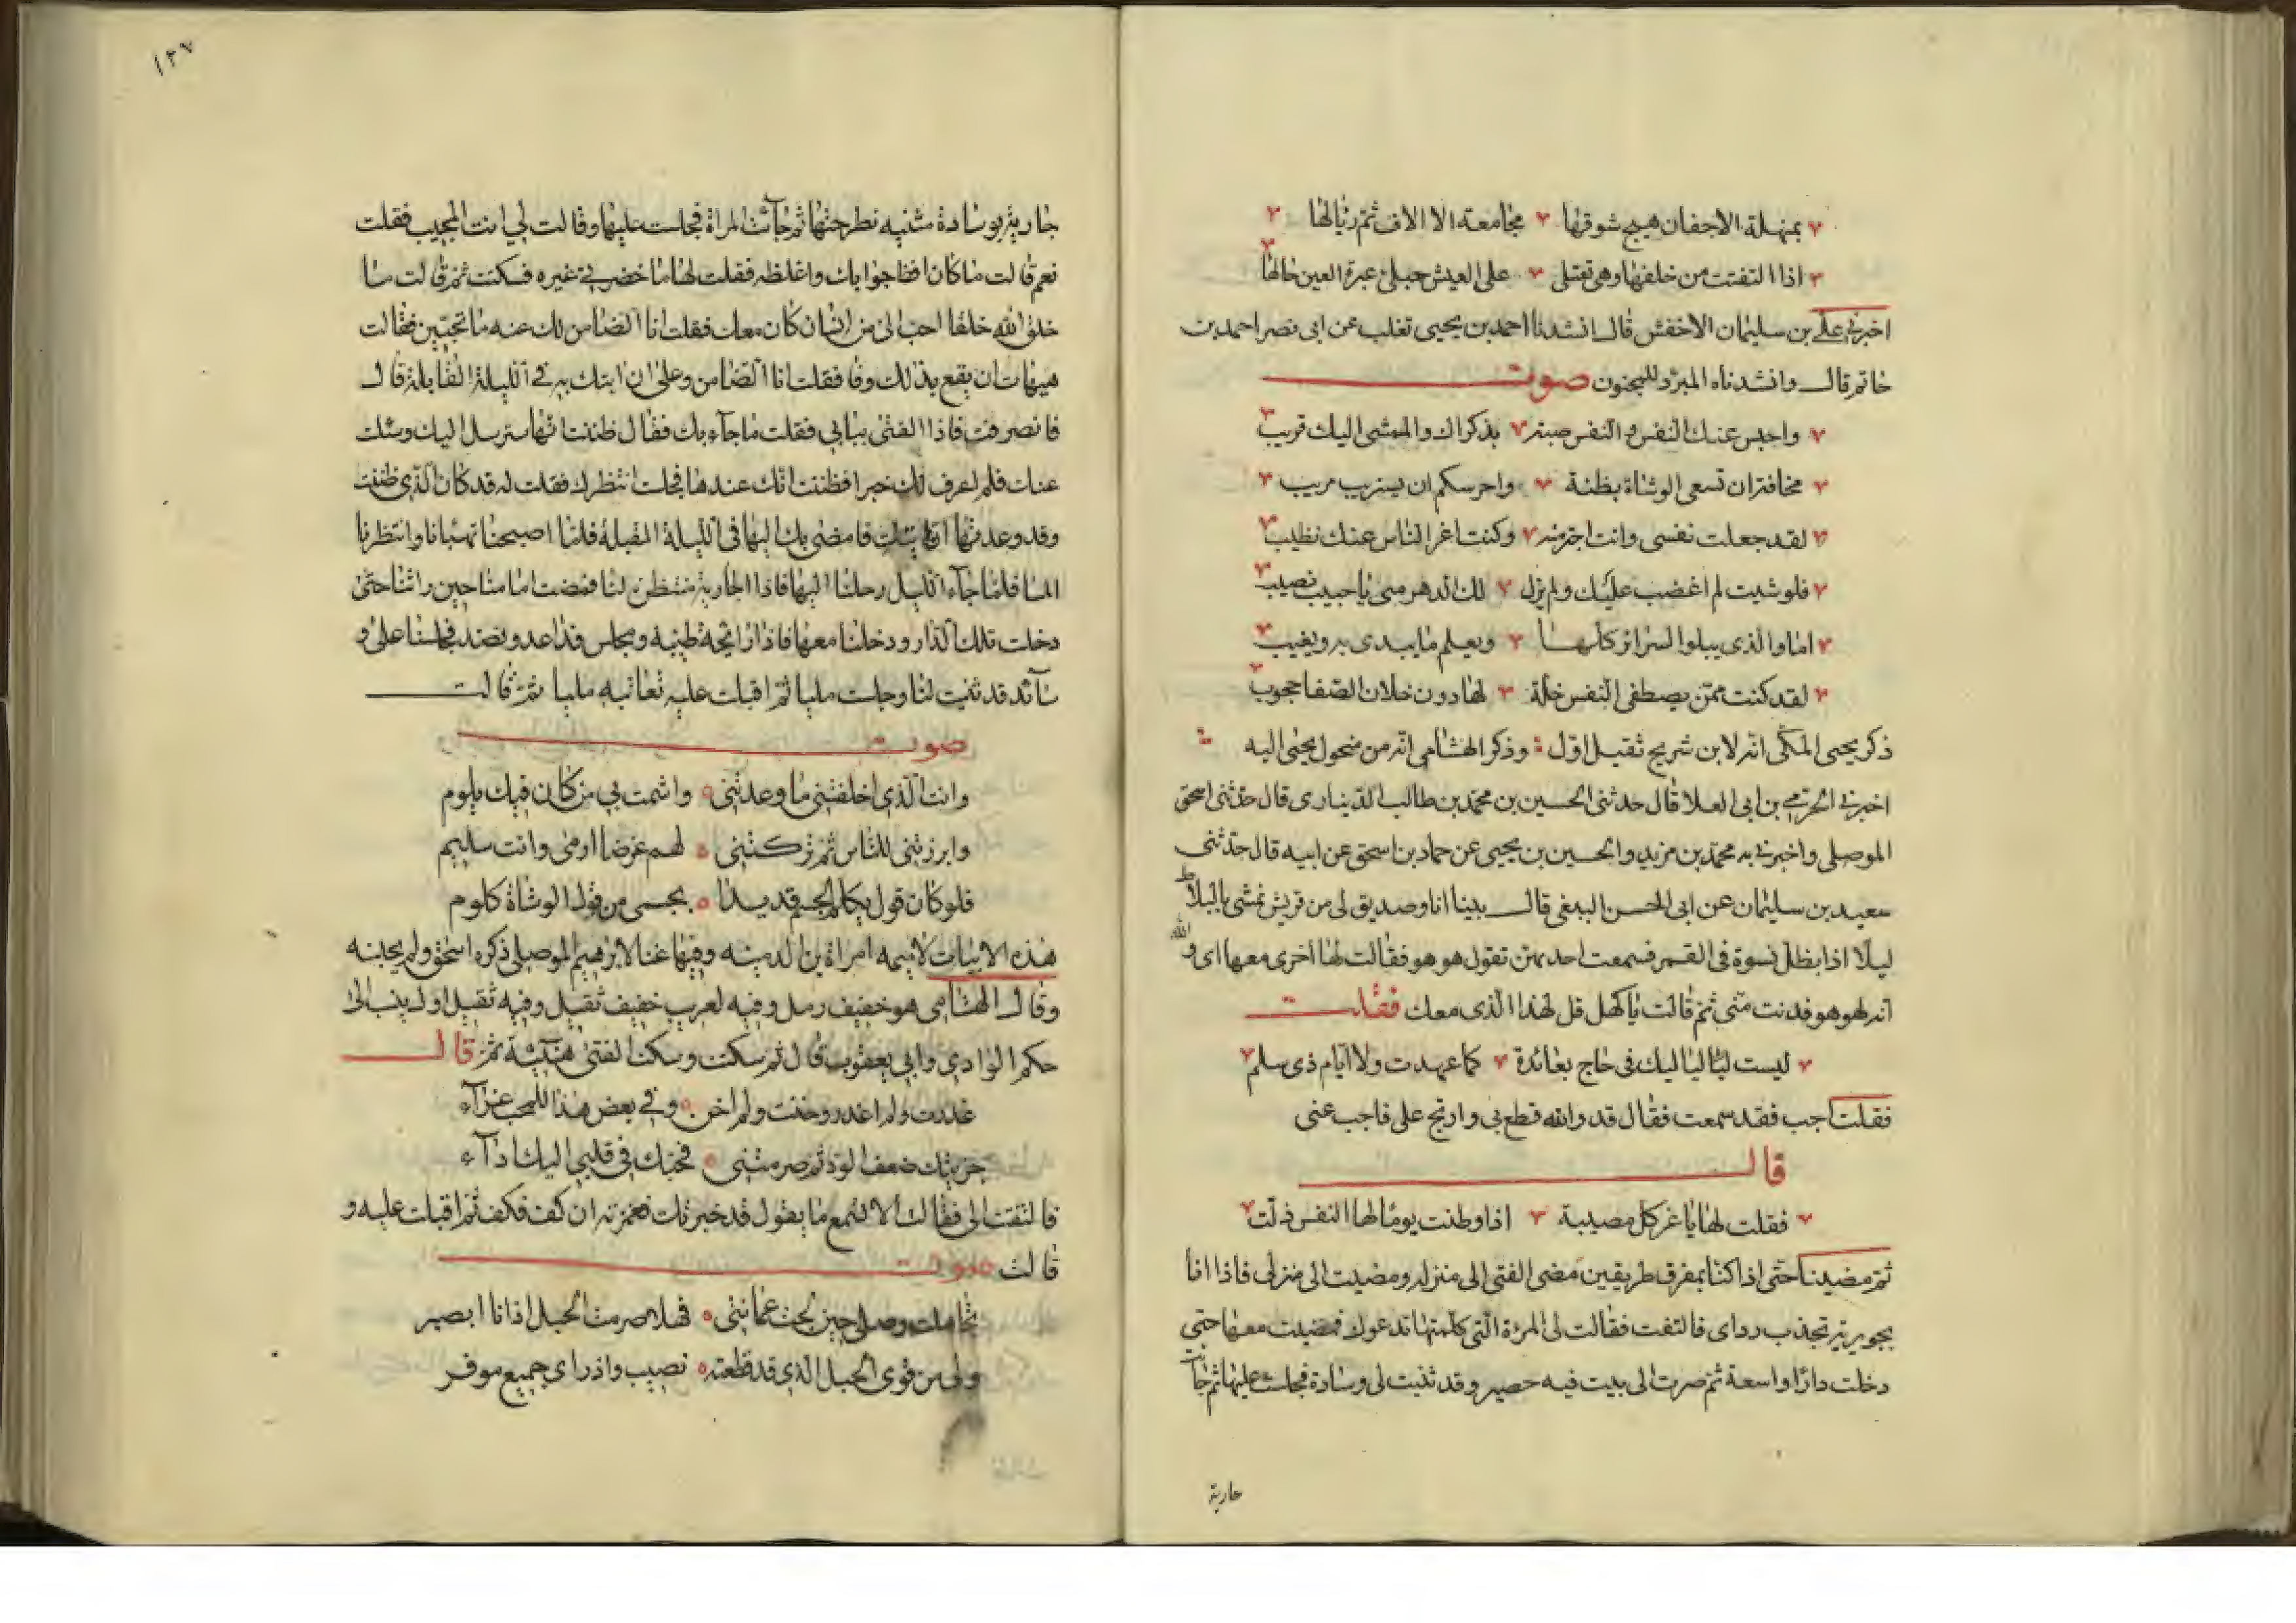 بمنهلة الاجفان هيج شوقها مجامعة الا الاف ثم زيالها
اذا التفتت من خلفها وهي تعتلى على العيش جبلى عبرة العين حالها
اخبرني علي بن سليمان الاخفش قال انشدنا احمد بن يحيى تغلب عن ابى نصر احمد بن
خاتم قال وانشدناه المبرد للمجنون صوت
واحبس عنك النفس والنفس صبة بذكراك والممشى اليك قريب
مخافة ان تسعى الوشاة بظنة واحرسكم ان يستريب مريب
لقد جعلت نفسى وانت اجترمته وكنت اغر الناس عنك تطيب
فلو شيت لم اغضب عليك ولم يزل لك الدهر منى يا حبيب نصيب
اما والذى يبلوا السرائر كلها ويعلم ما يبدى به ويغيب
لقد كنت ممن يصطفى النفس خلة لها دون خلان الصفا حجوب
ذكر يحيى المكى انه لابن شريح ثقيل اول وذكر الهشامى انه من منحول يحيى اليه
اخبرني الحرمي بن ابى العلا قال حدثنى الحسين بن محمد بن طالب الدينارى قال حدثنى اسحق
الموصلى واخبرنى به محمد بن مزيد والحسين بن يحيى عن حماد بن اسحق عن ابيه قال حدثنى
سعيد بن سليمان عن ابى الحسن الببغى قال بينا انا وصديق لى من قريش نمشى بالبلاط
ليلا اذا بظل نسوة فى القمر فسمعت احديهن تقول هو هو فقالت لها اخرى معها اى والله
انه لهو هو فدنت منى ثم قالت يا كهل قل لهذا الذى معك فقلت
ليست لياليا ليك فى حاج بعائدة كما عهدت ولا ايام ذى سلم
فقلت اجب فقد سمعت فقال قد والله قطع بى وارتج على فاجب عنى
قال
فقلت لها يا غر كل مصيبة اذا وطنت يوما لها النفس ذلت
ثم مضينا حتى اذا كنا بمفرق طريقين مضى الفتى الى منزله ومضيت الى منزلى فاذا انا
بجويرية تجذب رداى فالتفت فقالت لى المرءة التى كلمتها تدعوك فمضيت معها حتى
دخلت دارا واسعة ثم صرت الى بيت فيه حصير وقد ثنيت لى وسادة فجلست عليها ثم جآت
جارية
١٢٧
جارية بوسادة مثنيه فطرحتها ثم جآئت المراة فجلست عليها وقالت لي انت المجيب فقلت
نعم قالت ما كان افظ جوابك واغلظه فقلت لها ما حضرني غيره فسكتت ثم قالت ما
خلق الله خلقا احب الى من انسان كان معك فقلت انا الضامن لك عنه ما تحبين فقالت
هيهات ان يقع بذلك وفا فقلت انا الضامن وعلى ان اتيك به في الليلة القابلة قال
فانصرفت فاذا الفتى ببابي فقلت ما جاء بك فقال ظننت انها سترسل اليك وسئلت
عنك فلم اعرف لك خبرا فظننت انك عندها فجلست انتظرك فقلت له قد كان الذي ظننت
وقد وعدتها ان اتيك فامضى بك اليها فى الليلة المقبلة فلما اصبحنا تهيانا وانتظرنا
المسا فلما جآء الليل رحلنا اليها فاذا الجارية منتظرة لنا فمضت امامنا حين راتنا حتى
دخلت تلك الدار ودخلنا معها فاذا رائحة طيبة ومجلس قد اعد ونضد فجلسنا على و
سائد قد ثنيت لنا وجلست مليا ثم اقبلت عليه تعاتبه مليا ثم قالت
صوت
وانت الذي اخلفتني ما وعدتني واشمت بي من كان فيك يلوم
وابرزتني للناس ثم تركتني لهم غرضا ارمى وانت سليم
فلو كان قول يكلم الجسم قد بدا بجسمى من قول الوشاة كلوم
هذه الابيات لاميمه امراة بن الدمينه وفيها غنا لابرهيم الموصلي ذكره اسحق ولم يجنسه
وقال الهشامى هو خفيف رمل وفيه لعريب خفيف ثقيل وفيه ثقيل اول ينسب الى
حكم الوادي وابي يعقوب قال ثم سكتت وسكت الفتى هنيئة ثم قال
غدرت ولم اغدر وخنت ولم اخن وفي بعض هذا للمحب عزآء
جزيتك ضعف الود ثم صرمتني فحبك في قلبي اليك ادآء
فالتفتت الى فقالت الا تسمع ما يقول قد خبرتك فغمزته ان كف فكف ثم اقبلت عليه و
قالت صوت
تجاهلت وصلى حين لجت عمايتي فهلا صرمت الحبل اذ انا ابصر
ولى من قوى الحبل الذي قد قطعته نصيب واذ راى جميع موفر